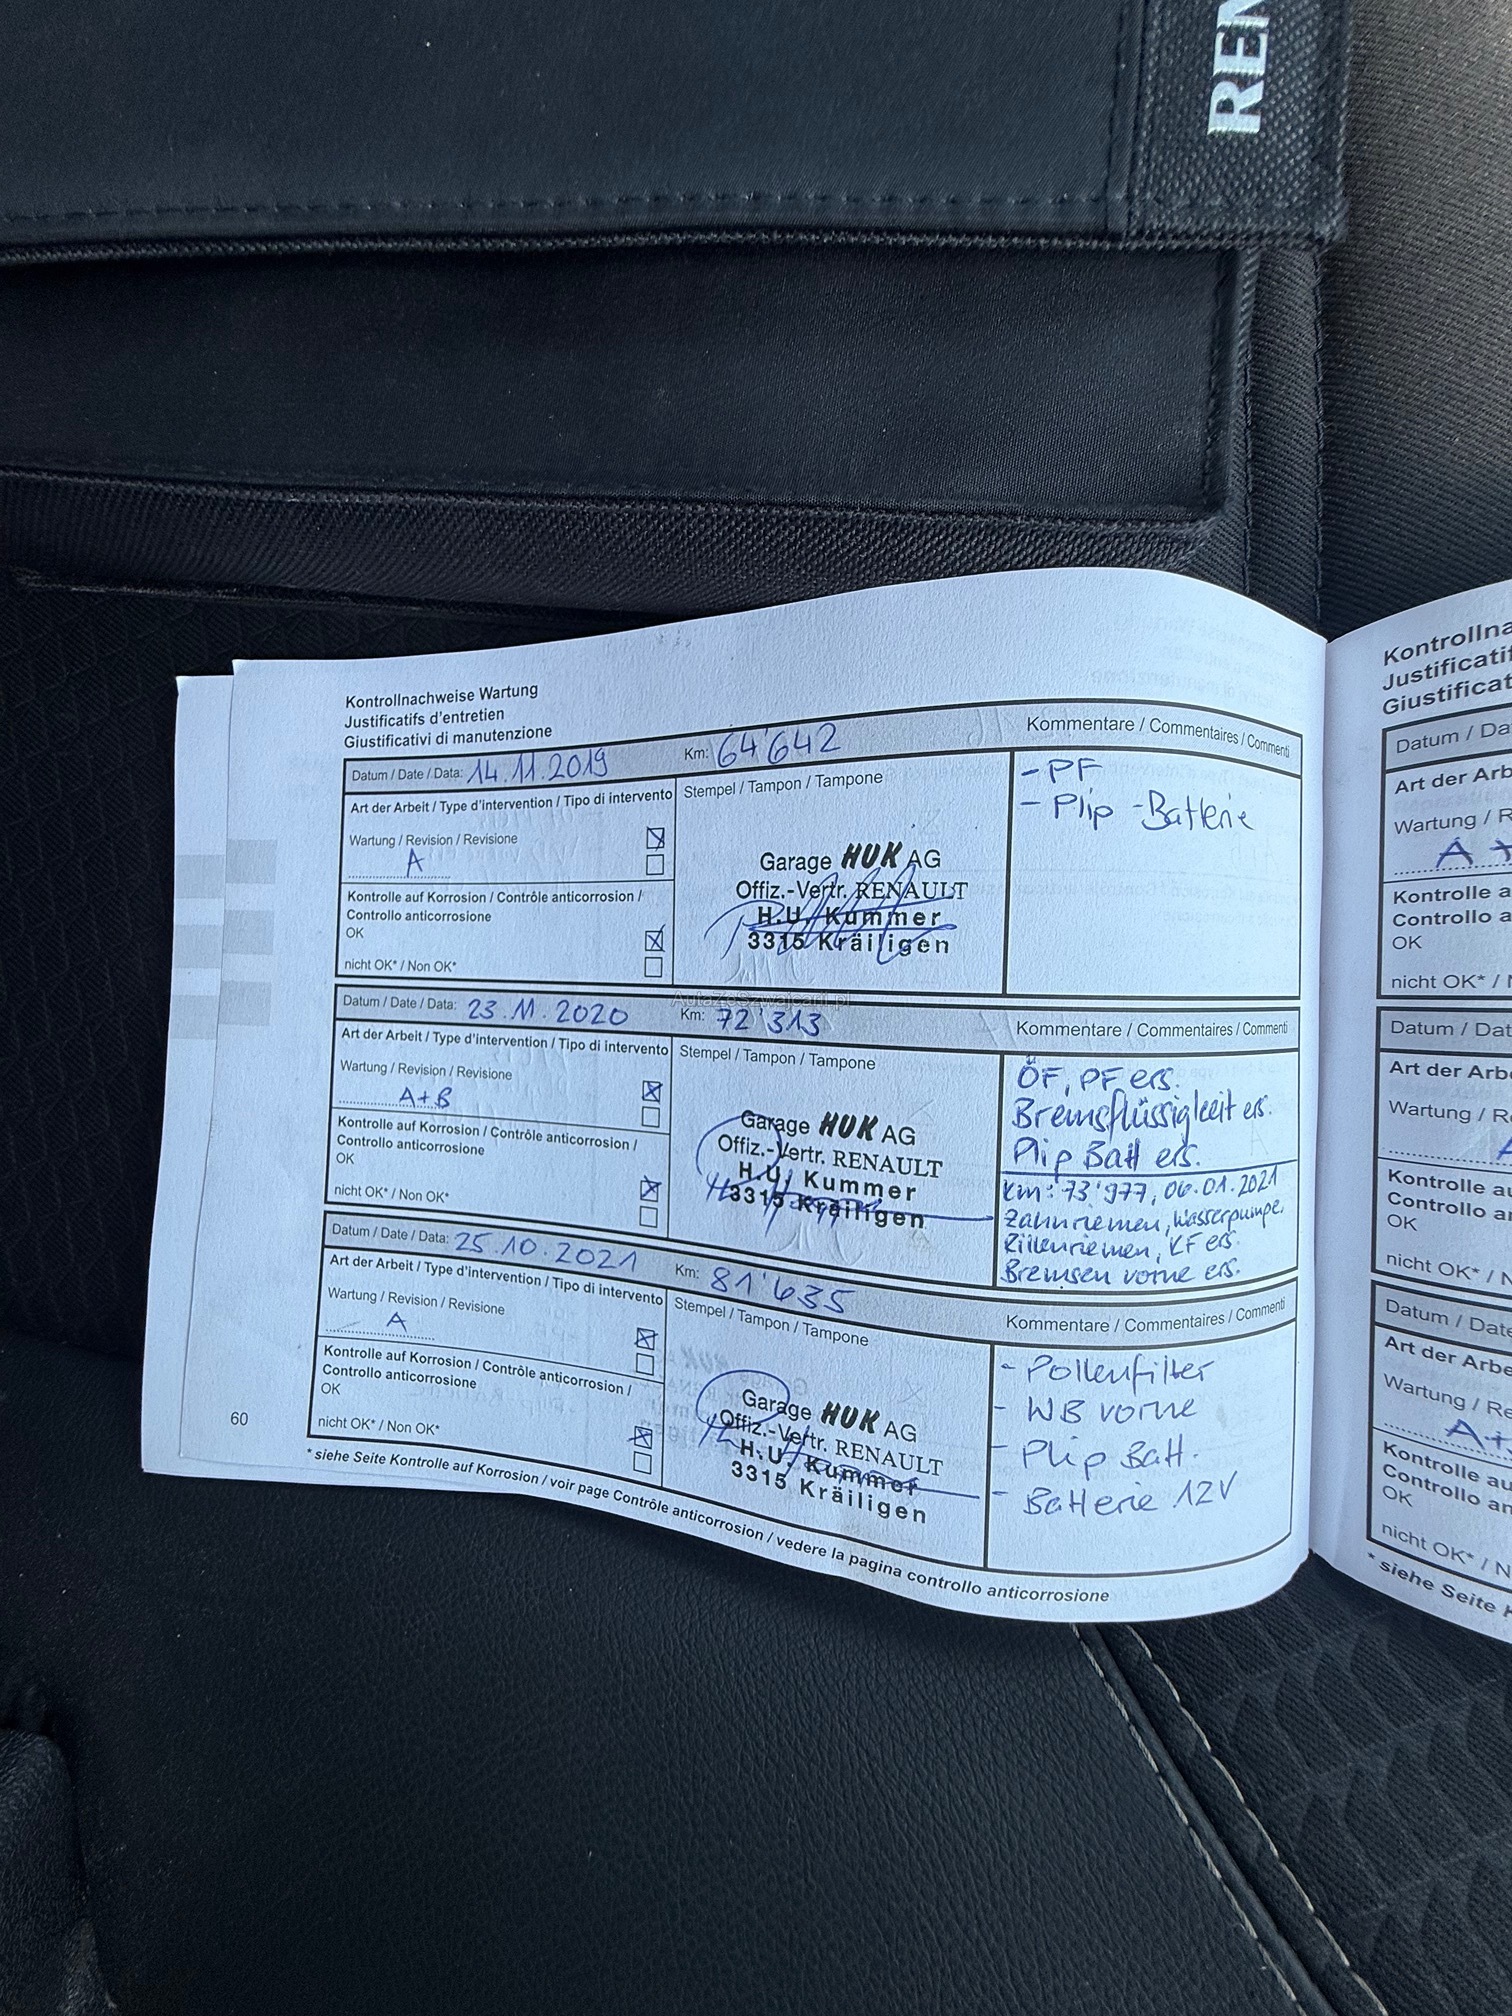 REN
Kontrollnachweise Wartung
Justificatifs d'entretien
Giustificativi di manutenzione
Datum / Date / Data: 14.11.2019 Km: 64'642 Kommentare / Commentaires / Commenti
Art der Arbeit / Type d'intervention / Tipo di intervento
Stempel / Tampon / Tampone
- PF
- Plip -Batterie
Wartung / Revision / Revisione
A
Kontrolle auf Korrosion / Contrôle anticorrosion /
Controllo anticorrosione
OK
nicht OK* / Non OK*
Garage HUK AG
Offiz.-Vertr. RENAULT
H.U. Kummer
3315 Kräiligen
AutaZeSzwajcarii.pl
Datum / Date / Data: 23.11.2020 Km: 72'313 Kommentare / Commentaires / Commenti
Art der Arbeit / Type d'intervention / Tipo di intervento
Stempel / Tampon / Tampone
Wartung / Revision / Revisione
A+B
Kontrolle auf Korrosion / Contrôle anticorrosion /
Controllo anticorrosione
OK
nicht OK* / Non OK*
Garage HUK AG
Offiz.-Vertr. RENAULT
H.U. Kummer
3315 Kräiligen
ÖF, PF ers.
Bremsflüssigkeit ers.
Plip Batt ers.
Km: 73'977, 06.01.2021
Zahnriemen, Wasserpumpe.
Rillenriemen, KF ers.
Bremsen vorne ers.
Datum / Date / Data: 25.10.2021 Km: 81'635 Kommentare / Commentaires / Commenti
Art der Arbeit / Type d'intervention / Tipo di intervento
Stempel / Tampon / Tampone
Wartung / Revision / Revisione
A
Kontrolle auf Korrosion / Contrôle anticorrosion /
Controllo anticorrosione
OK
nicht OK* / Non OK*
Garage HUK AG
Offiz.-Vertr. RENAULT
H.U. Kummer
3315 Kräiligen
- Pollenfilter
- WB vorne
- Plip Batt.
- Batterie 12V
60
* siehe Seite Kontrolle auf Korrosion / voir page Contrôle anticorrosion / vedere la pagina controllo anticorrosione
Kontrollna
Justificatif
Giustificat
Datum / Da
Art der Arb
Wartung / R
A +
Kontrolle a
Controllo a
OK
nicht OK* /
Datum / Dat
Art der Arb
Wartung / R
Kontrolle au
Controllo an
OK
nicht OK* / N
Datum / Date
Art der Arbe
Wartung / Re
A+
Kontrolle au
Controllo an
OK
nicht OK* / N
* siehe Seite K